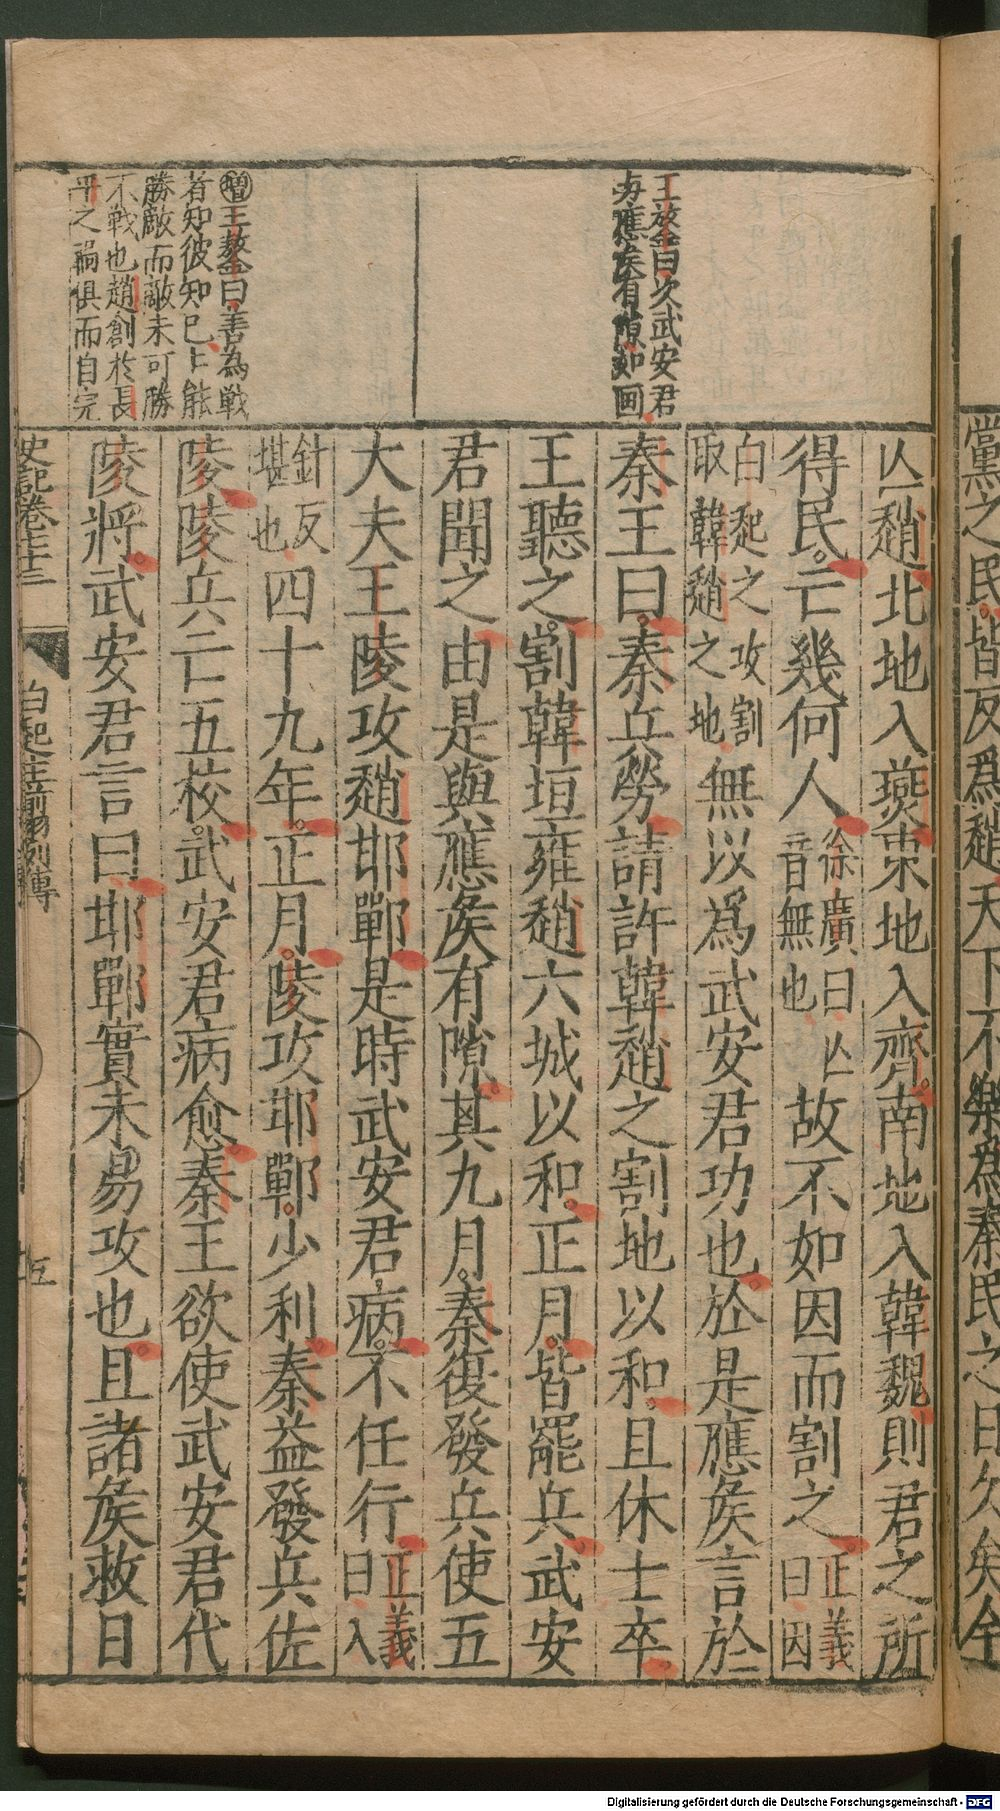 黨之民皆反爲趙天下不樂爲秦民之日久矣今
亾趙北地入燕東地入齊南地入韓魏則君之所
得民亡幾何人徐廣曰亾音無也故不如因而割之正義曰因
白起之攻割取韓趙之地無以爲武安君功也於是應矦言於
秦王曰秦兵勞請許韓趙之割地以和且休士卒
王聽之割韓垣雍趙六城以和正月皆罷兵武安
君聞之由是與應矦有隙其九月秦復發兵使五
大夫王陵攻趙邯鄲是時武安君病不任行正義曰入
針反堪也四十九年正月陵攻邯鄲少利秦益發兵佐
陵陵兵亡五校武安君病愈秦王欲使武安君代
陵將武安君言曰邯鄲實未易攻也且諸矦救日
王敖曰次武安君
與應矦有隙如画
增王敖曰善為戰
者知彼知己上能
勝敵而敵未可勝
不戰也趙創於長
平之禍俱而自完
史記卷七十三
白起王翦列傳
五
Digitalisierung gefördert durch die Deutsche Forschungsgemeinschaft - DFG